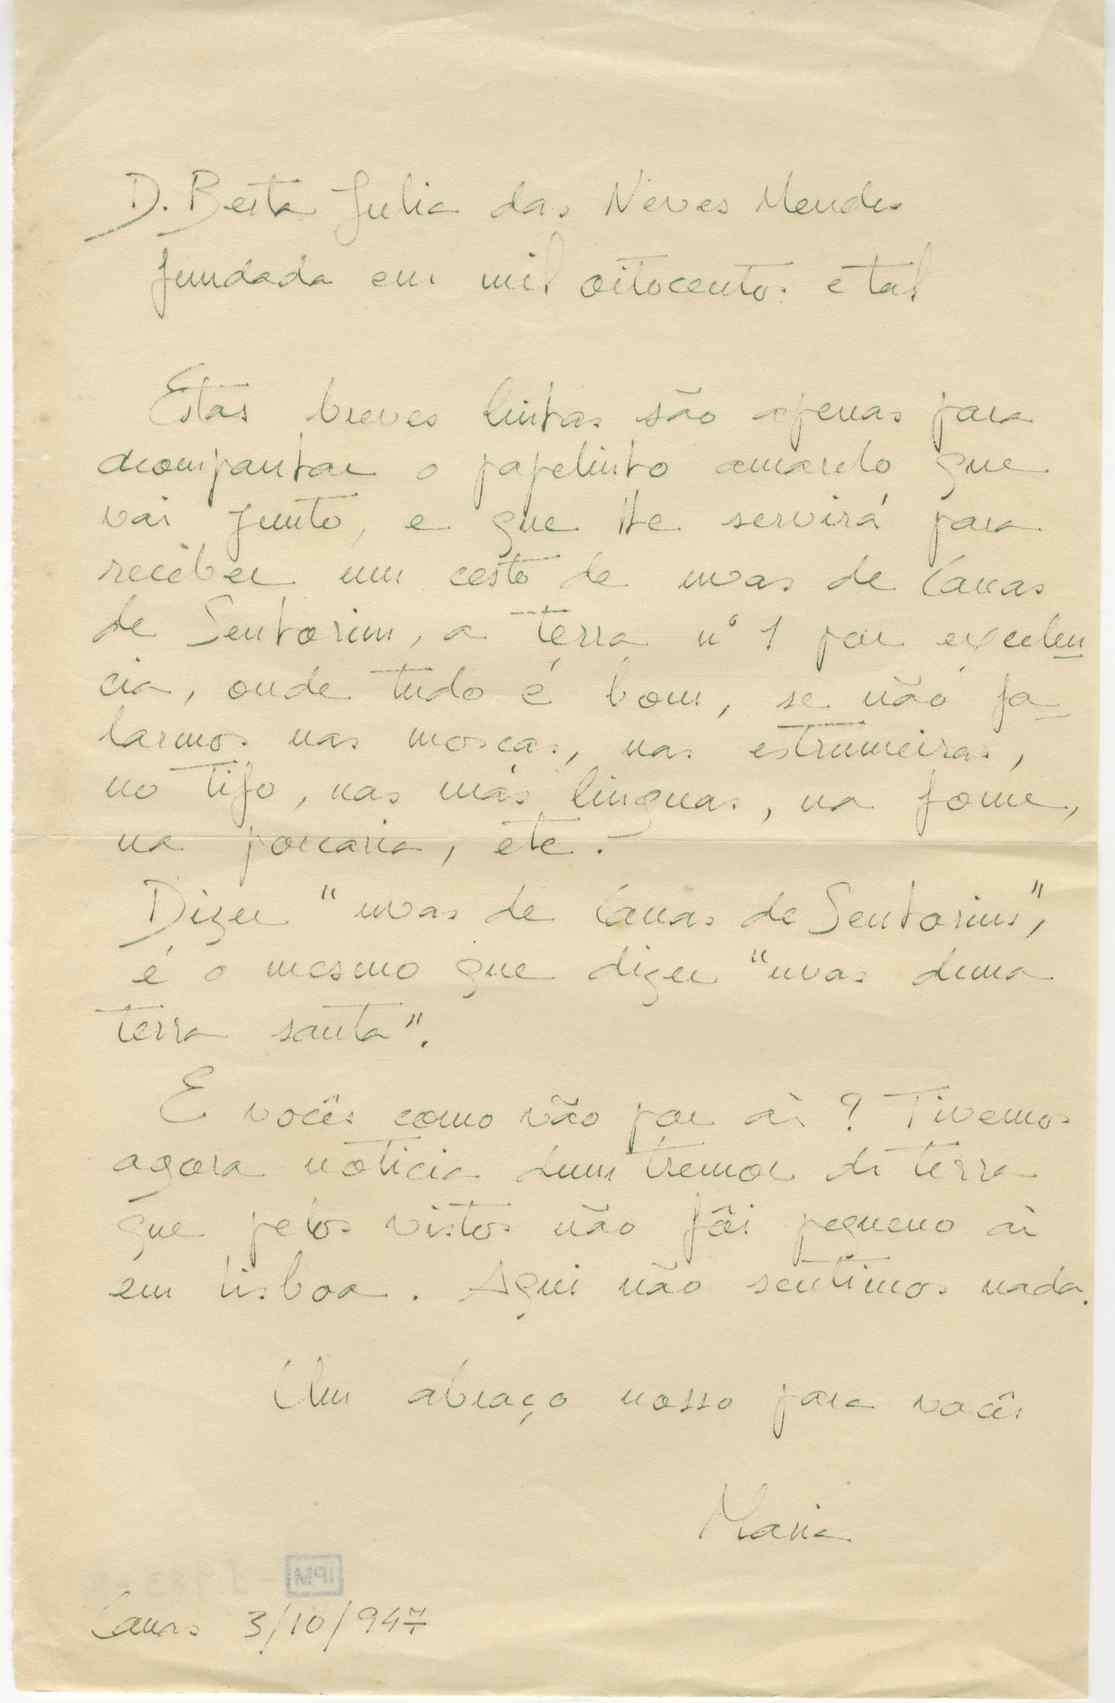 D. Berta Julia das Neves Mendes
fundada em mil oitocentos e tal
Estas breves linhas são apenas para
acompanhar o papelinho amarelo que
vai junto, e que lhe servirá para
recêber um cesto de uvas de Canas
de Senhorim, a terra nº 1 por excelen
cia, onde tudo é bom, se não fa-
larmos nas moscas, nas estrumeiras,
no tifo, nas más linguas, na fome,
na porcaria, etc.
Dizer "uvas de Canas de Senhorim",
é o mesmo que dizer "uvas duma
terra santa".
E vocês como vão por aí? Tivemos
agora noticia dum tremor de terra
que pelos vistos não fôi pequeno aí
em Lisboa. Aqui não sentimos nada.
Um abraço nosso para vocês
Maria
IPM
Canas 3/10/947